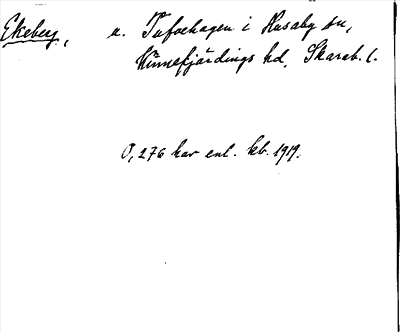 Ekeberg, u. Tufvehagen i Husaby sn,
Kinnefjärdings hd, Skarab. l.
0,276 har enl. kb. 1919.